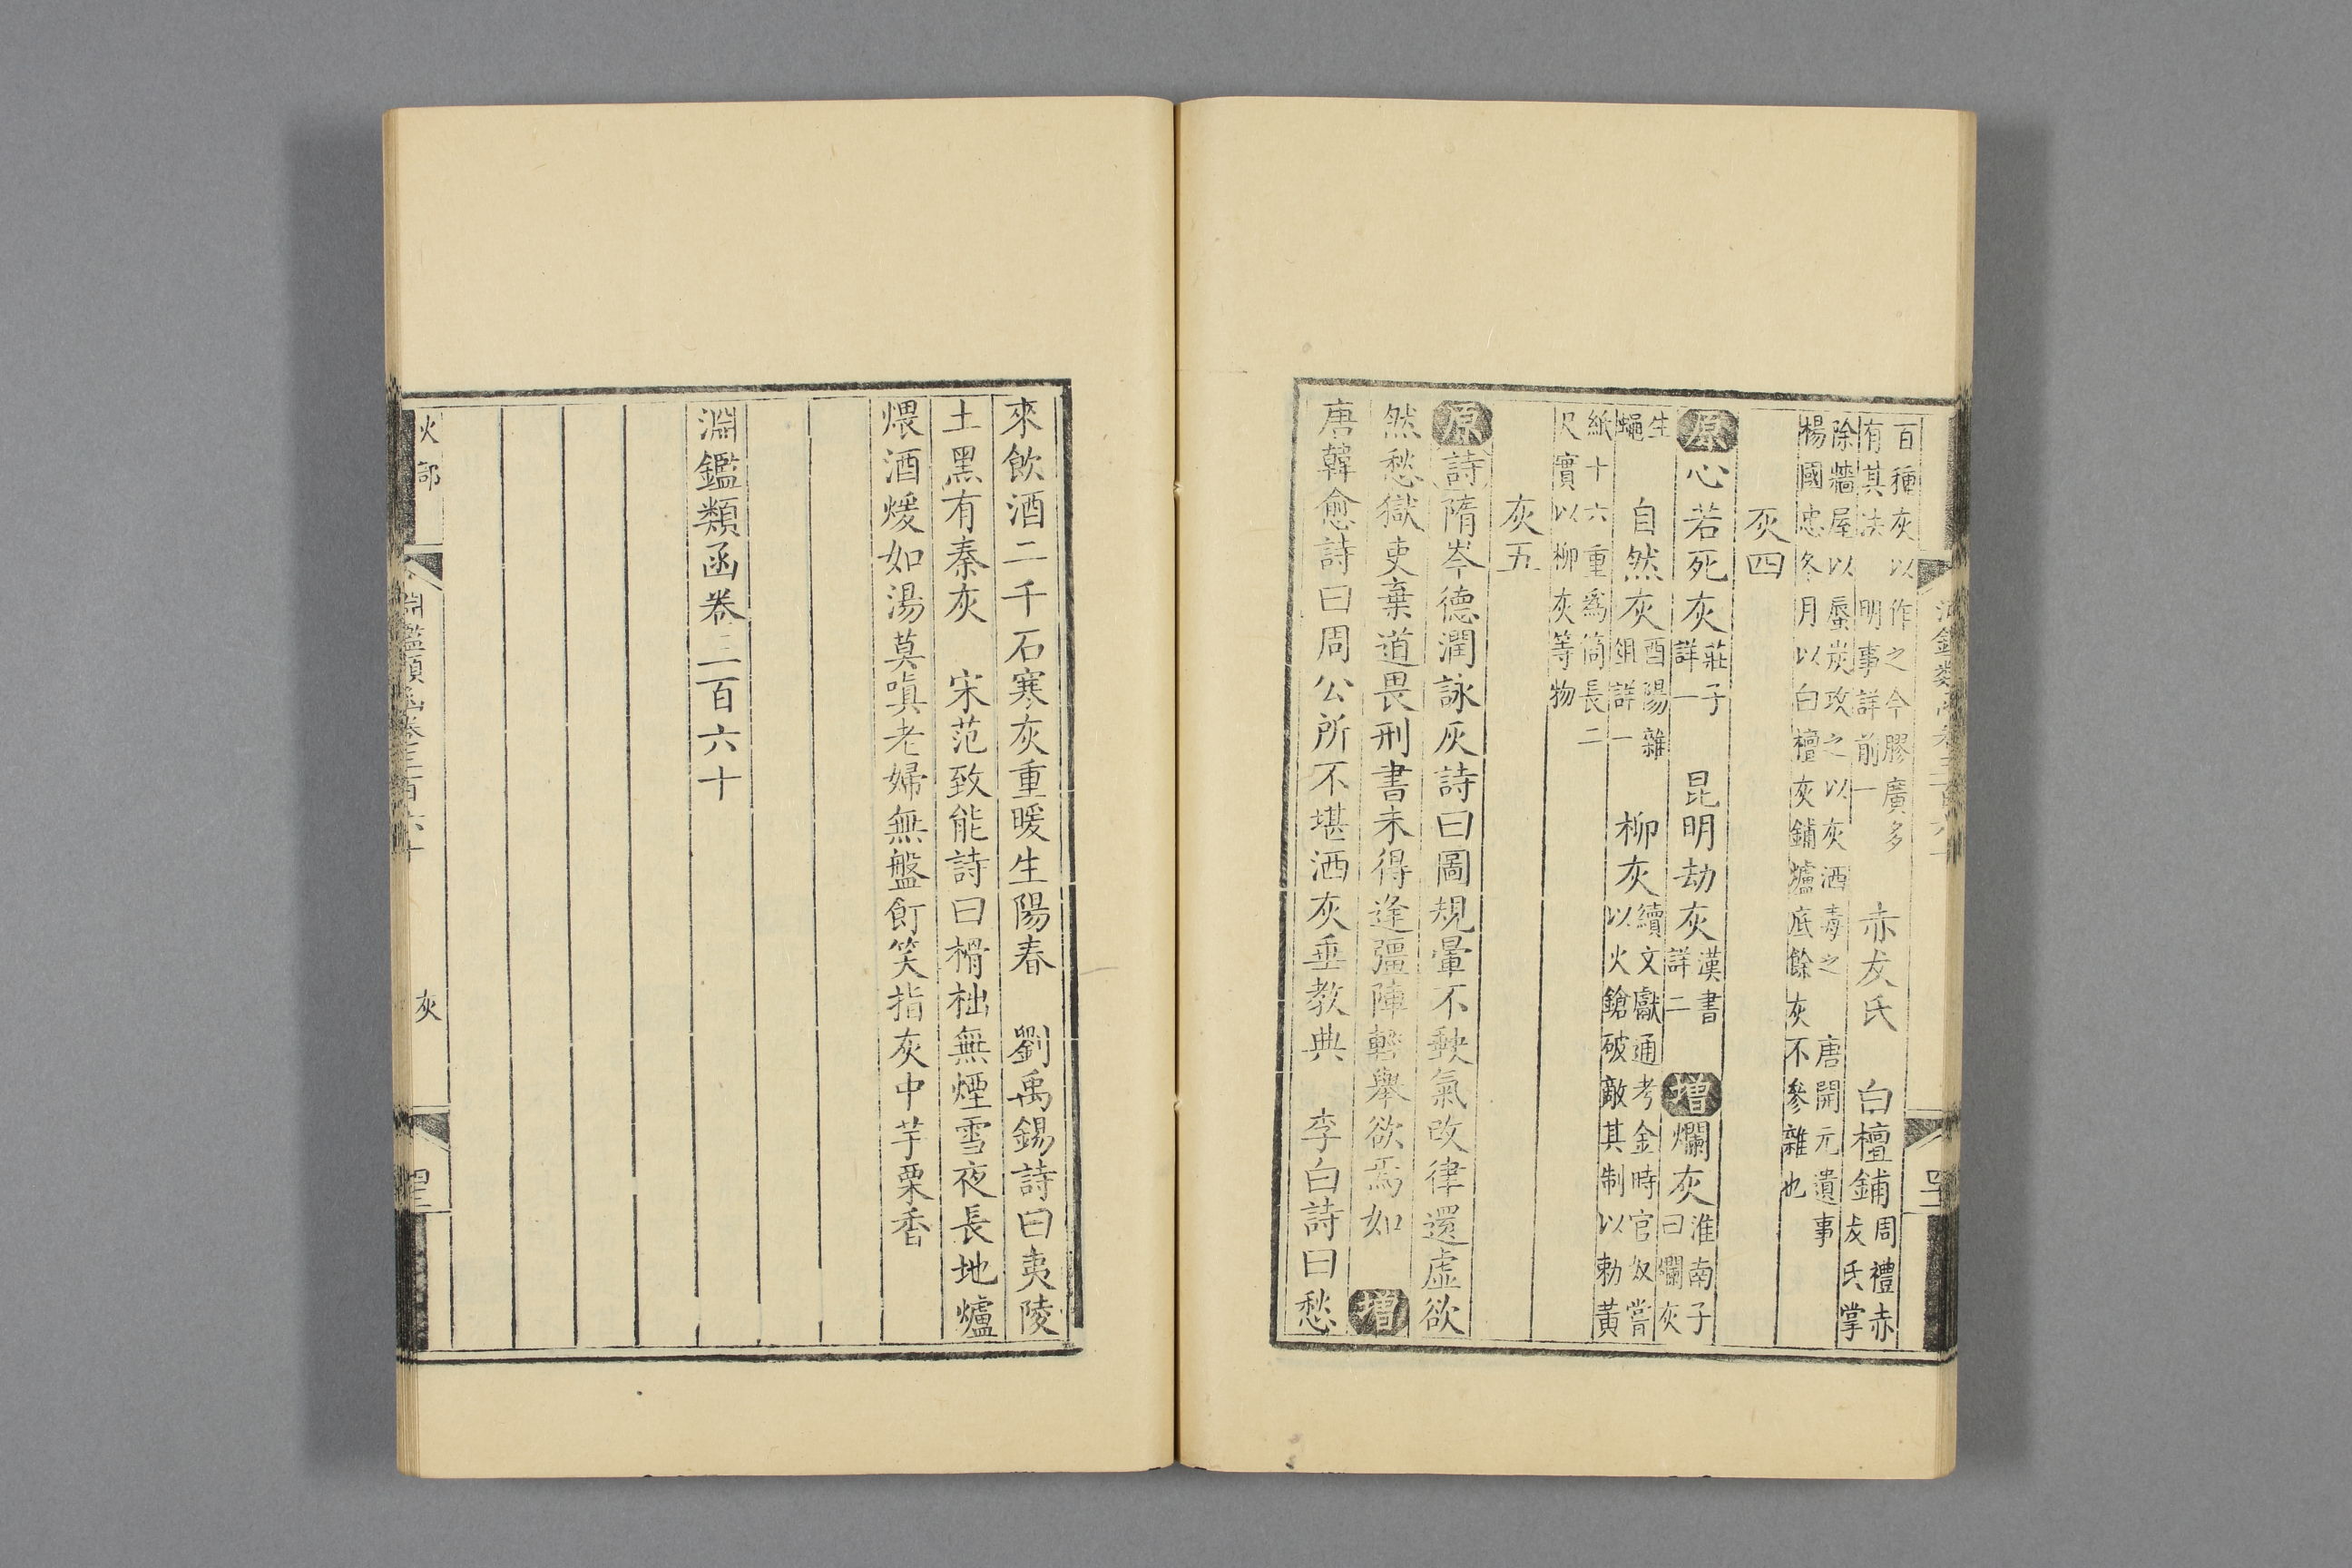 百種灰以作之今膠廣多
有其法 明事詳前一
赤犮氏 白檀鋪
周禮赤
犮氏掌
除牆屋以蜃炭攻之以灰洒毒之 唐開元遺事
楊國忠冬月以白檀灰鋪爐底餘灰不參雜也
灰四
原心若死灰
莊子
詳一
昆明劫灰
漢書
詳二
增爛灰
淮南子
曰爛灰
生
蠅
自然灰
酉陽雜
俎詳一
柳灰
續文獻通考金時官奴嘗
以火鎗破敵其制以勅黃
紙十六重爲筒長二
尺實以柳灰等物
灰五
原詩隋岑德潤詠灰詩曰圖規暈不缺氣改律還虛欲
然愁獄吏棄道畏刑書未得逢彊陣輕舉欲焉如 增
唐韓愈詩曰周公所不堪洒灰垂教典 李白詩曰愁
來飲酒二千石寒灰重暖生陽春 劉禹錫詩曰夷陵
土黑有秦灰 宋范致能詩曰榾柮無煙雪夜長地爐
煨酒煖如湯莫嗔老婦無盤飣笑指灰中芋栗香
淵鑑類函卷三百六十
火部 淵鑑類函卷三百六十 灰